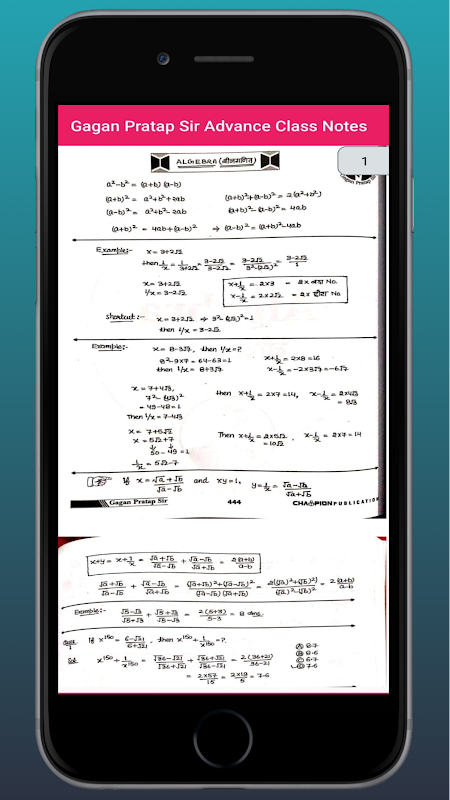 Gagan Pratap Sir Advance Class Notes
1
ALGEBRA (बीजगणित)
a²-b² = (a+b)(a-b)
(a+b)² = a²+b²+2ab (a+b)²+(a-b)² = 2(a²+b²)
(a-b)² = a²+b²-2ab (a+b)²-(a-b)² = 4ab
(a+b)² = 4ab+(a-b)² ⇒ (a-b)² = (a+b)²-4ab
Example:- x = 3+2√2
then 1/x = 1/(3+2√2) = (3-2√2)/(3-2√2) = (3-2√2)/(3²-(2√2)²) = (3-2√2)/1
x = 3+2√2 x+1/x = 2×3 = 2x बड़ा No.
1/x = 3-2√2 x-1/x = 2×2√2 = 2x छोटा No.
shortcut:- x = 3+2√2 ⇒ 3²-(2√2)²=1
then 1/x = 3-2√2
Example:- x = 8-3√7, then 1/x=?
8²-9×7 = 64-63=1 x+1/x = 2×8=16
then 1/x = 8+3√7 x-1/x = -2×3√7=-6√7
x = 7+4√3, then x+1/x = 2×7=14, x-1/x = 2×4√3
7²-(4√3)² = 8√3
= 49-48=1
Then 1/x = 7-4√3
x = 7+5√2 Then x+1/x = 2×5√2, x-1/x = 2×7 = 14
x = 5√2+7 = 10√2
50 - 49 = 1
1/x = 5√2-7
If x = (√a+√b)/(√a-√b) and xy=1, y=1/x = (√a-√b)/(√a+√b)
Gagan Pratap Sir 444 CHAMPION PUBLICATION
x+y = x+1/x = (√a+√b)/(√a-√b) + (√a-√b)/(√a+√b) = 2(a+b)/(a-b)
(√a+√b)/(√a-√b) + (√a-√b)/(√a+√b) = ((√a+√b)²+(√a-√b)²)/((√a-√b)(√a+√b)) = 2((√a)²+(√b)²)/((√a)²-(√b)²) = 2(a+b)/(a-b)
Example:- (√5-√3)/(√5+√3) + (√5+√3)/(√5-√3) = 2(5+3)/(5-3) = 8 ans.
Que. 1 If x¹⁵⁰ = (6-√21)/(6+√21), then x¹⁵⁰+1/x¹⁵⁰=?
Sol x¹⁵⁰+1/x¹⁵⁰ = (√36-√21)/(√36+√21) + (√36+√21)/(√36-√21) = 2(36+21)/(36-21)
= 2×57/15 = 2×19/5 = 7.6
Ⓐ 8.7
Ⓑ 8.6
Ⓒ 6.7
Ⓓ 7.6